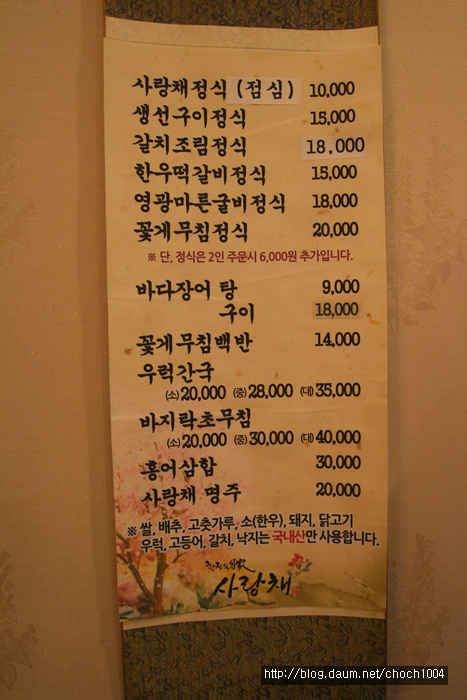 사랑채정식 (점심) 10,000
생선구이정식 15,000
갈치조림정식 18,000
한우떡갈비정식 15,000
영광마른굴비정식 18,000
꽃게무침정식 20,000
※ 단, 정식은 2인 주문시 6,000원 추가입니다.
바다장어 탕 9,000
구이 18,000
꽃게무침백반 14,000
우럭간국
(소)20,000 (중)28,000 (대)35,000
바지락초무침
(소)20,000 (중)30,000 (대)40,000
홍어삼합 30,000
사랑채 명주 20,000
※ 쌀, 배추, 고춧가루, 소(한우), 돼지, 닭고기
우럭, 고등어, 갈치, 낙지는 국내산만 사용합니다.
사랑채
http://blog.daum.net/choch1004